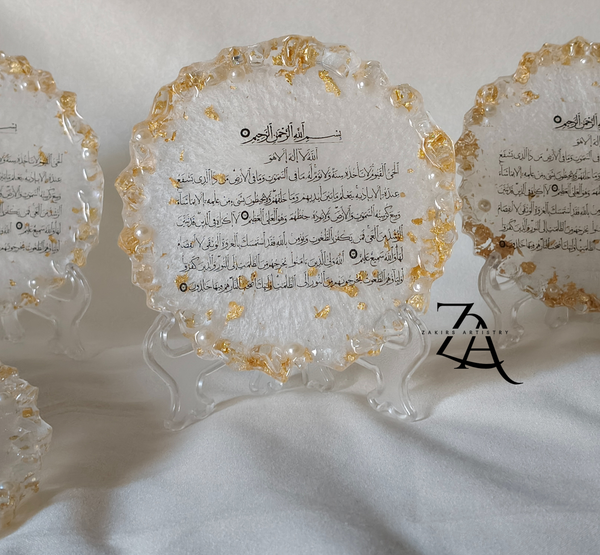 بسم الله الرحمن الرحيم
الله لا إله إلا هو
الحي القيوم لا تأخذه سنة ولا نوم له ما في السموات وما في الأرض من ذا الذي يشفع
عنده إلا بإذنه يعلم ما بين أيديهم وما خلفهم ولا يحيطون بشيء من علمه إلا بما شاء
وسع كرسيه السموات والأرض ولا يئوده حفظهما وهو العلي العظيم لا إكراه في الدين قد تبين
الرشد من الغي فمن يكفر بالطاغوت ويؤمن بالله فقد استمسك بالعروة الوثقى لا انفصام
لها والله سميع عليم الله ولي الذين آمنوا يخرجهم من الظلمات إلى النور والذين كفروا
أولياؤهم الطاغوت يخرجونهم من النور إلى الظلمات أولئك أصحاب النار هم فيها خالدون
ZA
ZAKIRS ARTISTRY